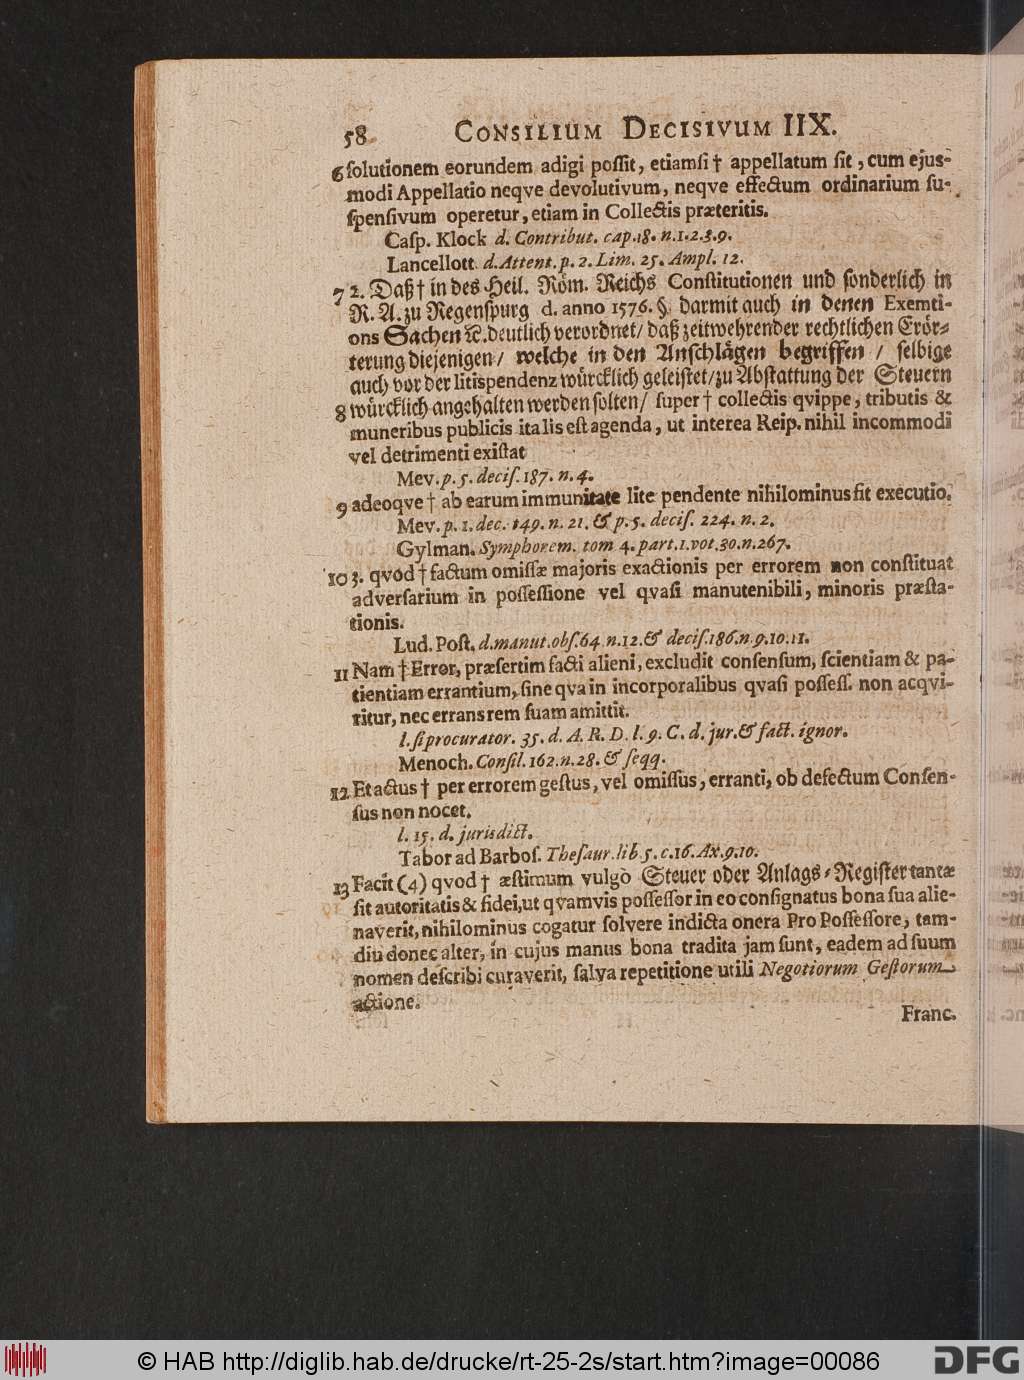 58 CONSILIUM DECISIVUM IIX.
6 ſolutionem eorundem adigi poſſit, etiamſi † appellatum ſit, cum ejus-
modi Appellatio neqve devolutivum, neqve effectum ordinarium ſu-
ſpenſivum operetur, etiam in Collectis præteritis.
Caſp. Klock d. Contribut. cap. 18. n. 1. 2. 3. 9.
Lancellott. d. Attent. p. 2. Lim. 25. Ampl. 12.
7 2. Daß † in des Heil. Röm. Reichs Conſtitutionen und ſonderlich in
R. A. zu Regenſpurg d. anno 1576. §. darmit auch in denen Exemti-
ons Sachen ꝛc. deutlich verordnet/ daß zeitwehrender rechtlichen Erör-
terung diejenigen/ welche in den Anſchlägen begriffen / ſelbige
auch vor der litispendenz würcklich geleiſtet/ zu Abſtattung der Steuern
8 würcklich angehalten werden ſolten/ ſuper † collectis qvippe, tributis &
muneribus publicis ita lis eſt agenda, ut interea Reip. nihil incommodi
vel detrimenti exiſtat
Mev. p. 5. deciſ. 187. n. 4.
9 adeoqve † ab earum immunitate lite pendente nihilominus fit executio.
Mev. p. 1. dec. 149. n. 21. & p. 5. deciſ. 224. n. 2.
Gylman. Symphorem. tom 4. part. 1. vot. 30. n. 267.
10 3. qvod † factum omiſſæ majoris exactionis per errorem non conſtituat
adverſarium in poſſeſſione vel qvaſi manutenibili, minoris præſta-
tionis.
Lud. Poſt. d. manut. obſ. 64. n. 12. & deciſ. 186. n. 9. 10. 11.
11 Nam † Error, præſertim facti alieni, excludit conſenſum, ſcientiam & pa-
tientiam errantium, ſine qva in incorporalibus qvaſi poſſeſſ. non acqvi-
ritur, nec errans rem ſuam amittit.
l. ſi procurator. 35. d. A. R. D. l. 9. C. d. jur. & fact. ignor.
Menoch. Conſil. 162. n. 28. & ſeqq.
12 Et actus † per errorem geſtus, vel omiſſus, erranti, ob defectum Conſen-
ſus non nocet.
l. 15. d. jurisdict.
Tabor ad Barboſ. Theſaur. lib. 5. c. 16. Ax. 9. 10.
13 Facit (4) qvod † æſtimum vulgò Steuer oder Anlags-Regiſter tantæ
ſit autoritatis & fidei, ut qvamvis poſſeſſor in eo conſignatus bona ſua alie-
naverit, nihilominus cogatur ſolvere indicta onera Pro Poſſeſſore, tam-
diu donec alter, in cujus manus bona tradita jam ſunt, eadem ad ſuum
nomen deſcribi curaverit, ſalva repetitione utili Negotiorum Geſtorum
actione.
Franc.
© HAB http://diglib.hab.de/drucke/rt-25-2s/start.htm?image=00086
DFG